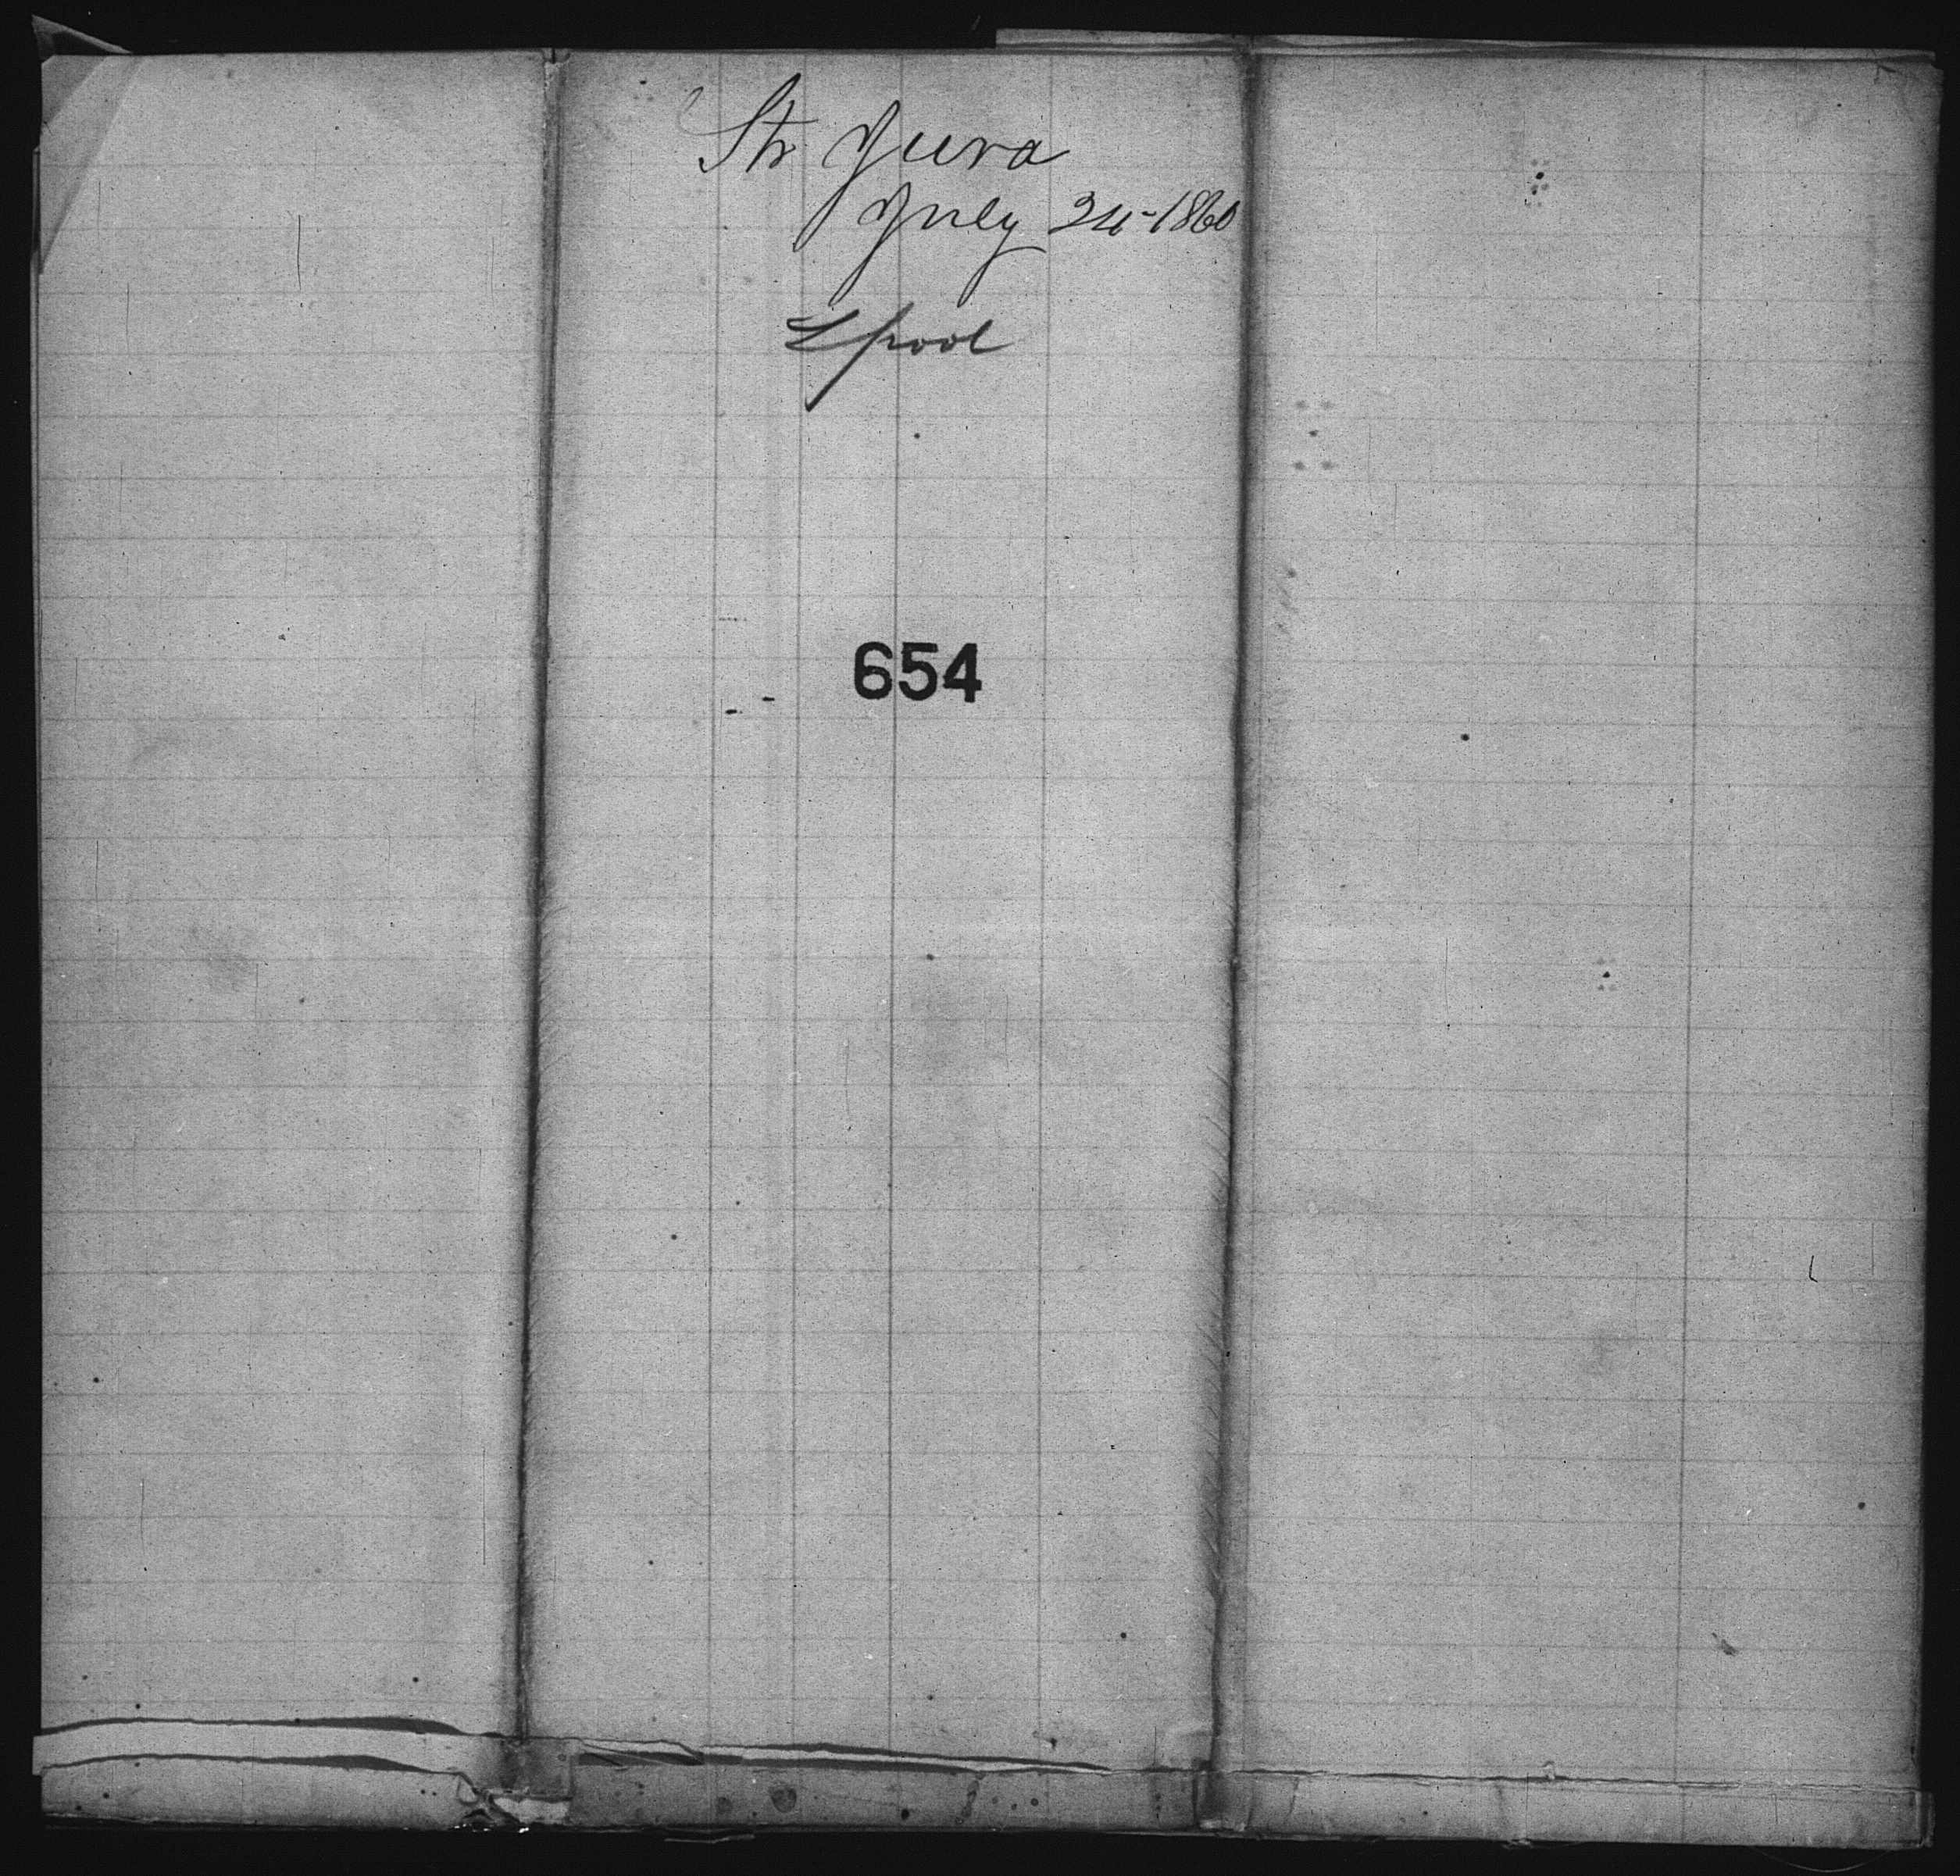 Str Jura
July 24-1860
Lpool
654